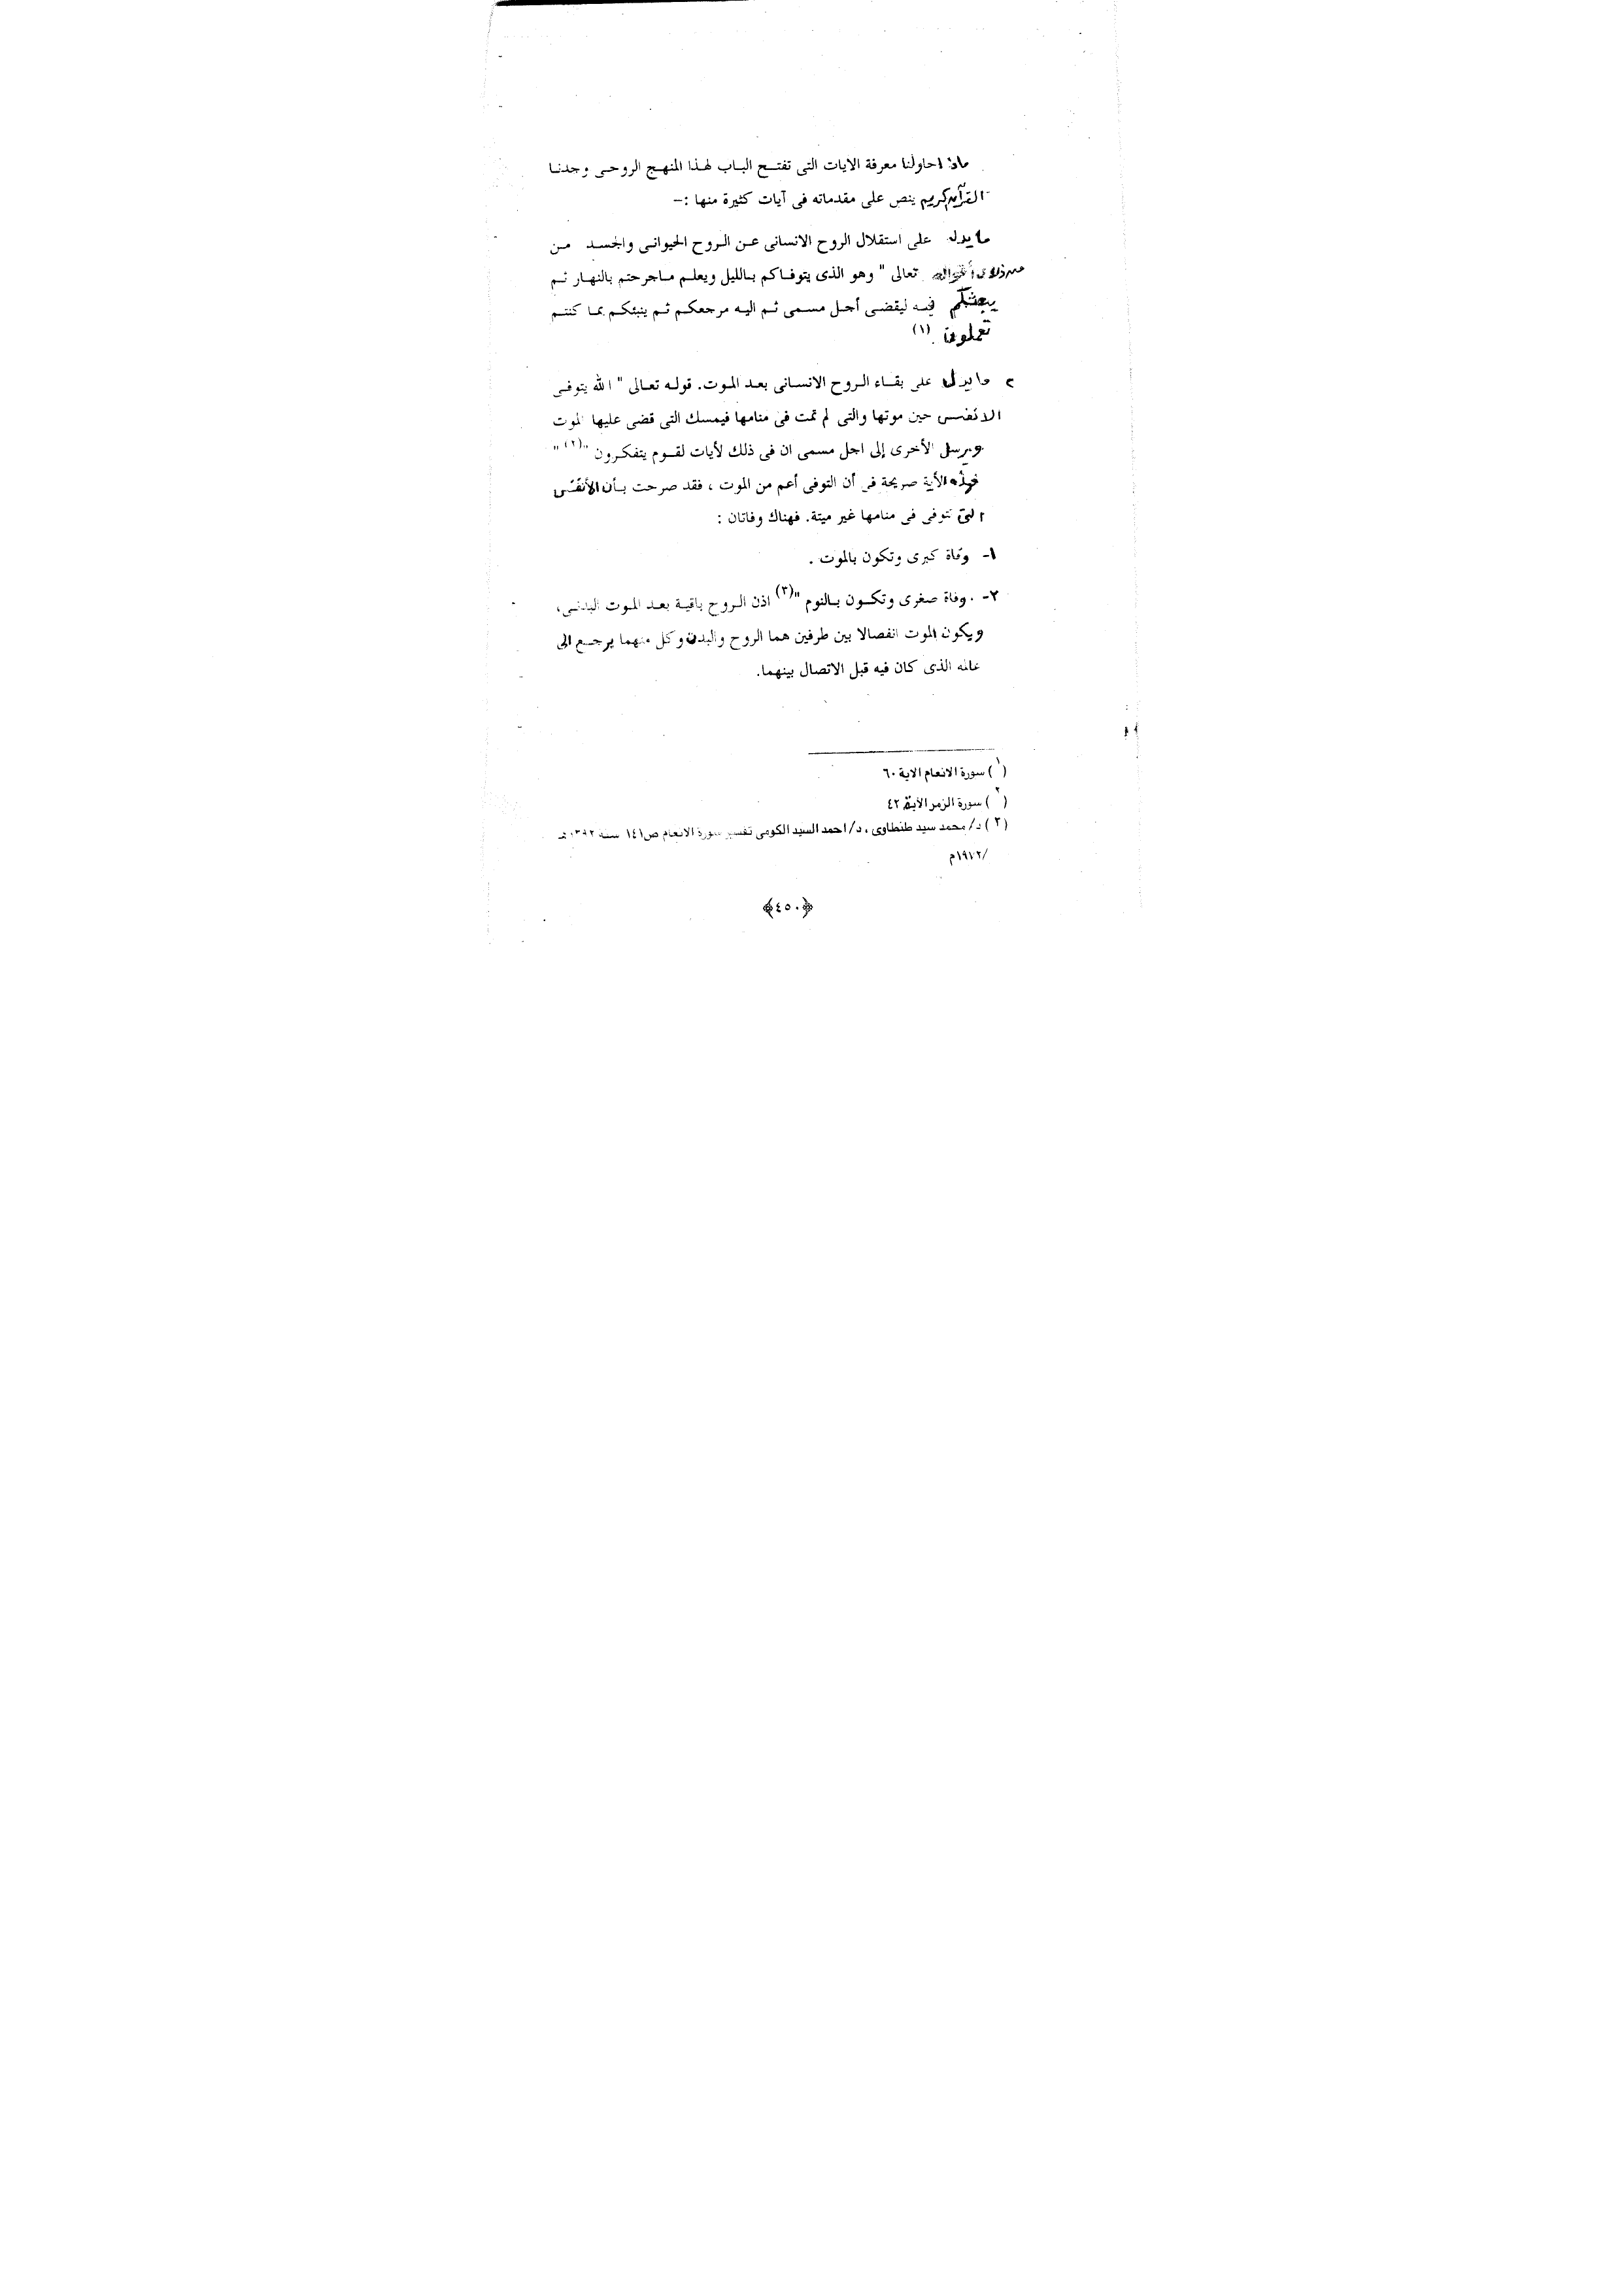 ماذا احاولنا معرفة الايات التى تفتح الباب لهذا المنهج الروحى وجدنا
القرآن الكريم ينص على مقدماته فى آيات كثيرة منها :–
ما يدل على استقلال الروح الانسانى عن الروح الحيوانى والجسد من
تعالى " وهو الذى يتوفاكم بالليل ويعلم ماجرحتم بالنهار ثم
يبعثكم فيه ليقضى أجل مسمى ثم اليه مرجعكم ثم ينبئكم بما كنتم
تعملون (١)
٢ ما يدل على بقاء الروح الانسانى بعد الموت. قوله تعالى " الله يتوفى
الانفس حين موتها والتى لم تمت فى منامها فيمسك التى قضى عليها الموت
ويرسل الأخرى إلى اجل مسمى ان فى ذلك لأيات لقوم يتفكرون "(٢) "
فهذه الأية صريحة فى أن التوفى أعم من الموت ، فقد صرحت بأن الأنفس
التى تتوفى فى منامها غير ميتة. فهناك وفاتان :
١- وفاة كبرى وتكون بالموت .
٢- . وفاة صغرى وتكون بالنوم "(٣) اذن الروح باقية بعد الموت البدنى،
ويكون الموت انفصالا بين طرفين هما الروح والبدن وكل منهما يرجع الى
عالمه الذى كان فيه قبل الاتصال بينهما.
(١) سورة الانعام الاية ٦٠
(٢) سورة الزمر الأية ٤٢
(٢) د/ محمد سيد طنطاوى ، د/ احمد السيد الكومى تفسير سورة الانعام ص١٤١ سنة
﴿٤٥٠﴾